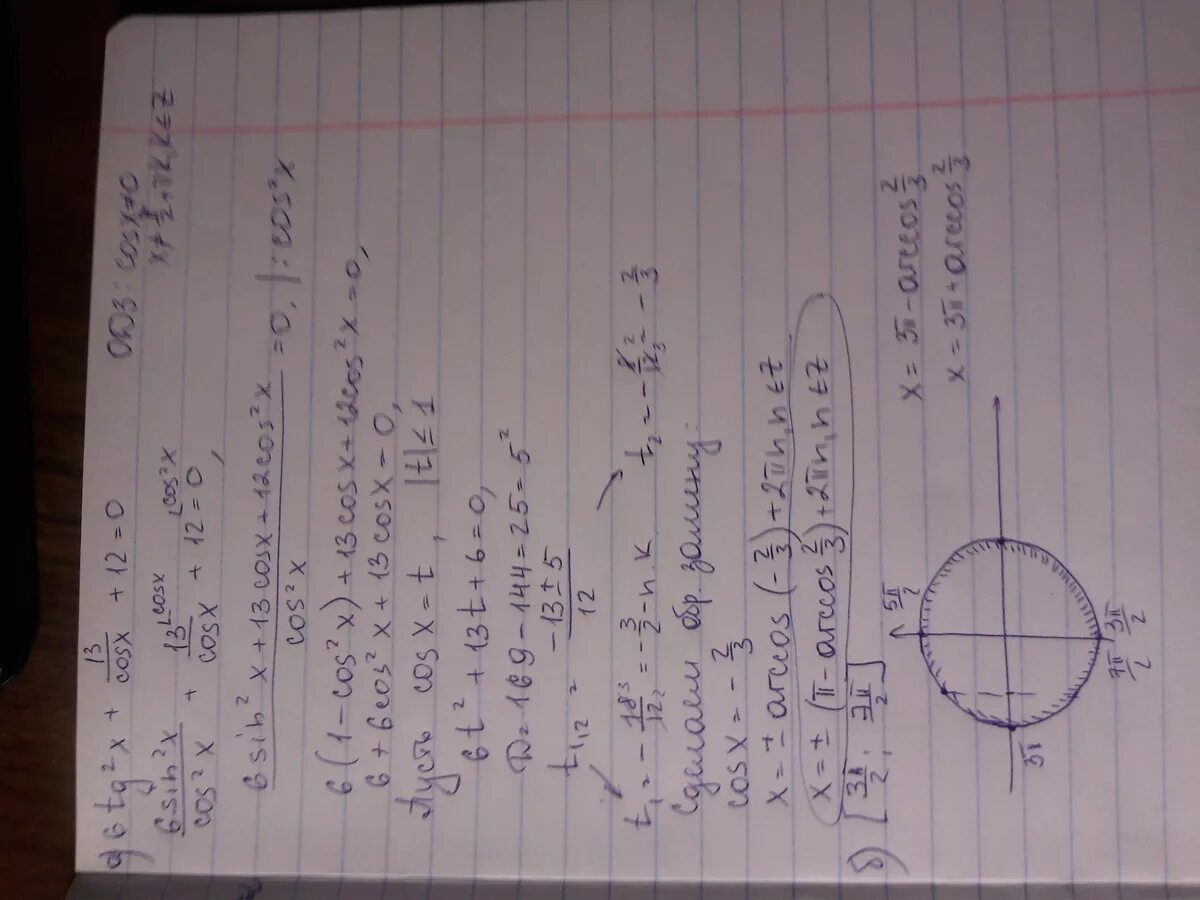 а) 6 tg²x + 13/cosx + 12 = 0   ОДЗ: cosx≠0
x≠ π/2 + πk, k∈Z
6sin²x/cos²x + 13 ⌊cosx/cosx + 12 ⌊cos²x = 0,
6sin²x + 13cosx + 12cos²x / cos²x = 0, | : cos²x
6(1 - cos²x) + 13cosx + 12cos²x = 0,
6 + 6cos²x + 13cosx = 0,
Пусть cosx = t, |t| ≤ 1
6t² + 13t + 6 = 0,
D = 169 - 144 = 25 = 5²
t₁,₂ = -13 ± 5 / 12
t₁ = - 18 3/12 2 = - 3/2 - п.к   t₂ = - 8 2/12 3 = - 2/3
Сделаем обр. замену:
cosx = - 2/3
x = ± arccos(- 2/3) + 2πn, n∈Z
x = ± (π - arccos 2/3) + 2πn, n∈Z
б) [3π/2; 7π/2]
5π/2
3π
7π/2   3π/2
x = 3π - arccos 2/3
x = 3π + arccos 2/3